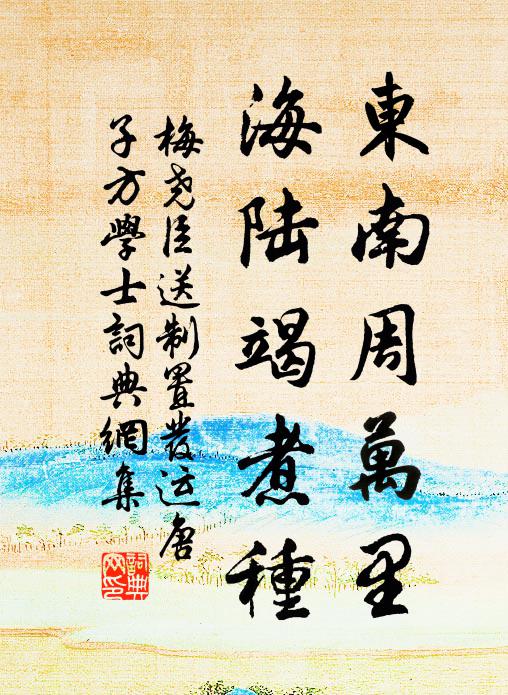 東南周萬里
海陆竭煮種
梅尧臣送制置發运唐
子方學士詞典網集
詞典
网印